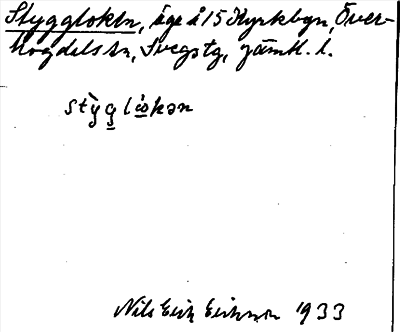 Styggloken, äga å 15 Kyrkbyn, Över-
hogdals sn, Svegs tg, Jämtl. l.
stỳg lo̊kən
Nils Erik Eriksson 1933